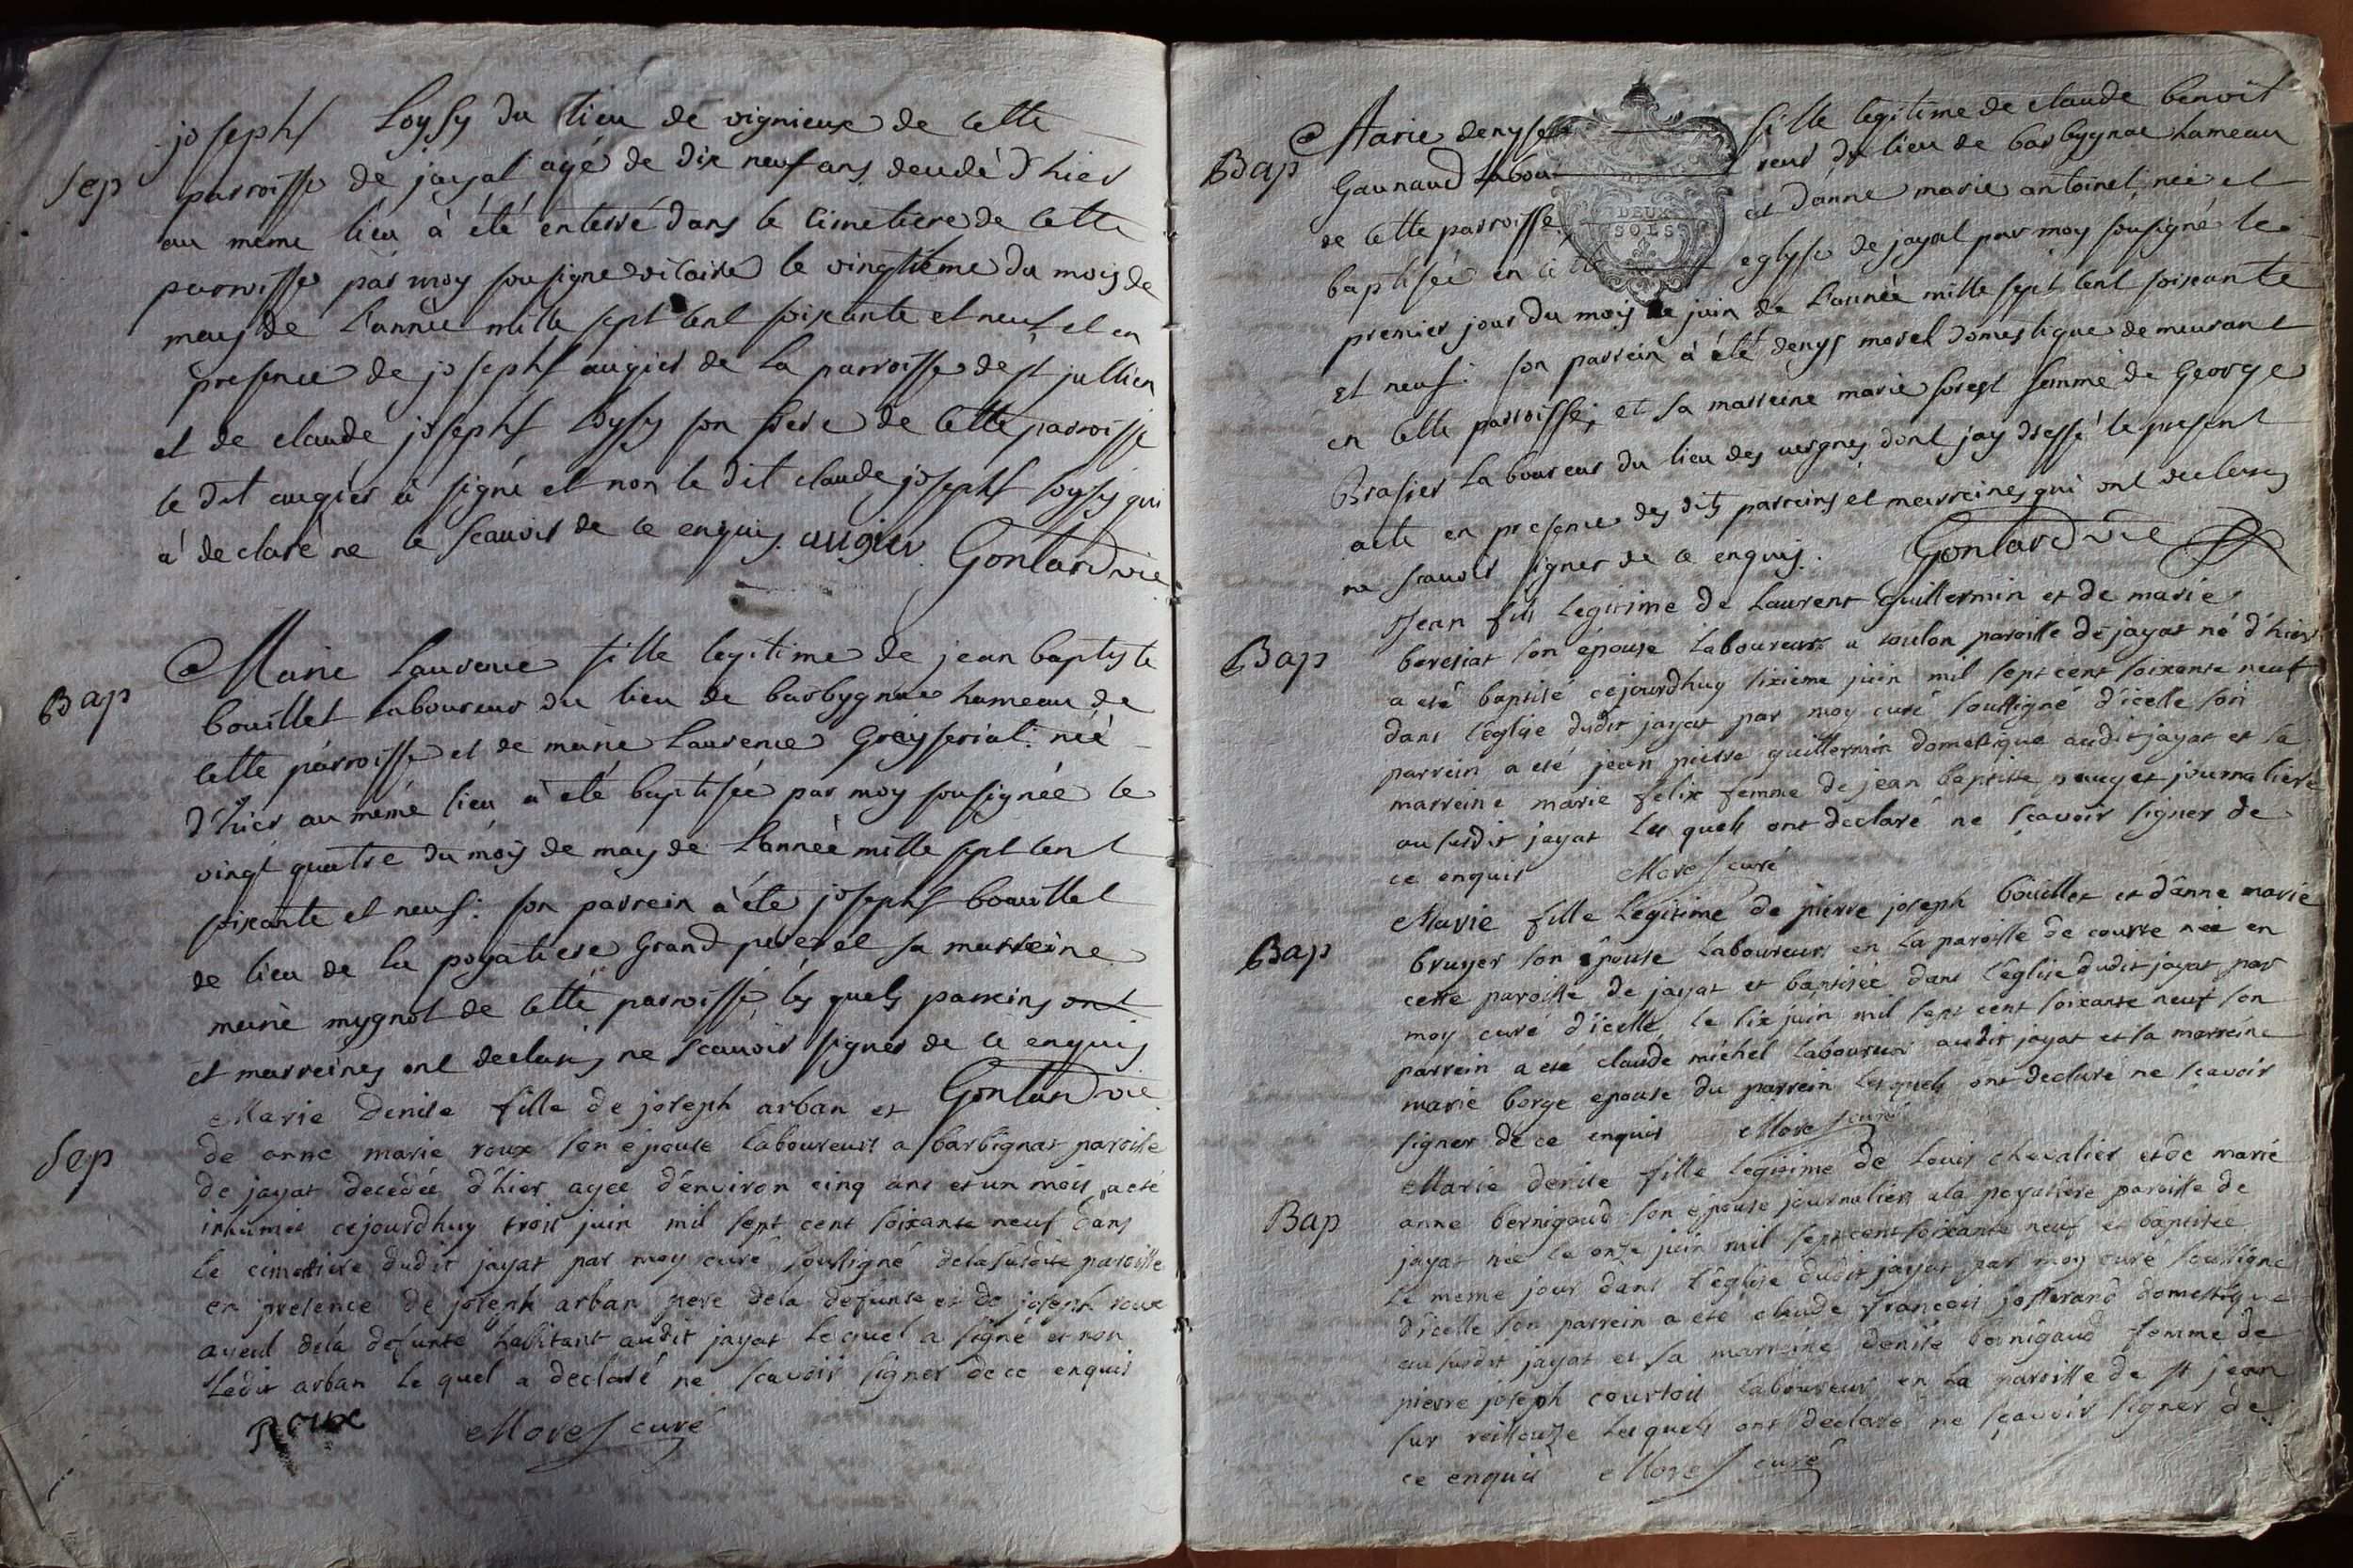 josephs Loysy du lieu de vignieux de cette
Sep
parroisse de jayat agé de dix neuf ans decedé d'hier
au meme lieu à été enterré dans le cimetiere de cette
parroisse par moy sousigne vicaire le vingtième du mois de
may de L'année mille sept cent soixante et neuf et en
presence de josephs augier de La parroisse de st jullien
et de claude josephs Loysy son frere de cette parroisse
le dit augier à signé et non le dit claude josephs Loysy qui
à declaré ne le scauoir de ce enquis. augier Gontard vic
Bap
Marie Laurence fille legitime de jean baptiste
bouillet Laboureur du lieu de barbygnac hameau de
cette parroisse et de marie Laurence née
d'hier au même lieu à été baptisée par moy sousignée le
vingt quatre du mois de may de L'année mille sept cent
soixante et neuf: son parrein à été josephs bouillet
de lieu de la poyatiere Grand père, et sa marreine
marie mygnot de cette parroisse, les quels parreins ont
et marreines ont declarés ne scauoir signer de ce enquis
Gontard vic
Sep
Marie Denise fille de joseph arban et
de anne marie roux son épouse Laboureurs a barbignat paroisse
de jayat decedée d'hier agee d'environ cinq ans et un mois a eté
inhumée cejourdhuy trois juin mil sept cent soixante neuf dans
le cimettiere dudit jayat par moy curé soussigné de la susdite paroisse
en presence de joseph arban pere de la defunte et de joseph roux
ayeul de la defunte habitant audit jayat lequel a signé et non
ledit arban le quel a declaré ne scavoir signer de ce enquis
Roux Morel curé
Bap
Marie denyse fille legitime de claude benoit
Gaunaud Labou reur du lieu de barbygnac hameau
de cette parroisse et d'anne marie antoinet, née et
baptisée en cette eglyse de jayat par moy sousigné le
premier jour du mois de juin de L'année mille sept cent soixante
et neuf: son parrein à été denys morel domestique demeurant
en cette parroisse, et sa marreine marie forest femme de George
Brasier Laboureur du lieu des vergnes dont jay dressé le present
acte en presence des dits parreins et marreines qui ont declarés
ne scauoir signer de ce enquis. Gontard vic
DEUX
SOLS
Bap
Jean fils legitime de Laurent guillermin et de marie
beresiat son épouse Laboureurs a toulon paroisse de jayat né d'hier
a eté baptisé cejourdhuy sixieme juin mil sept cent soixante neuf
dans l'eglise dudit jayat par moy curé soussigné d'icelle son
parrein a eté jean pierre guillermin domestique audit jayat et la
marreine marie felix femme de jean baptiste journaliere
au susdit jayat les quels ont declaré ne sçavoir signer de
ce enquis Morel curé
Bap
Marie fille legitime de pierre joseph bouillet et d'anne marie
bruyer son épouse Laboureurs en la paroisse de courre née en
cette paroisse de jayat et baptisée dans l'eglise dudit jayat par
moy curé d'icelle le six juin mil sept cent soixante neuf son
parrein a eté claude michel laboureur audit jayat et sa marreine
marie borge epouse du parrein lesquels ont declaré ne sçavoir
signer de ce enquis Morel curé
Bap
Marie denise fille legitime de Louis chevalier et de marie
anne bernigaud son épouse journaliers a la poyatiere paroisse de
jayat née le onze juin mil sept cent soixante neuf et baptisée
le meme jour dans l'église dudit jayat par moy curé soussigné
d'icelle son parrein a eté claude françois josserand domestique
au susdit jayat et sa marreine denise bernigaud femme de
pierre joseph courtois laboureur en la paroisse de st jean
sur reissouze lesquels ont declaré ne sçavoir signer de
ce enquis Morel curé